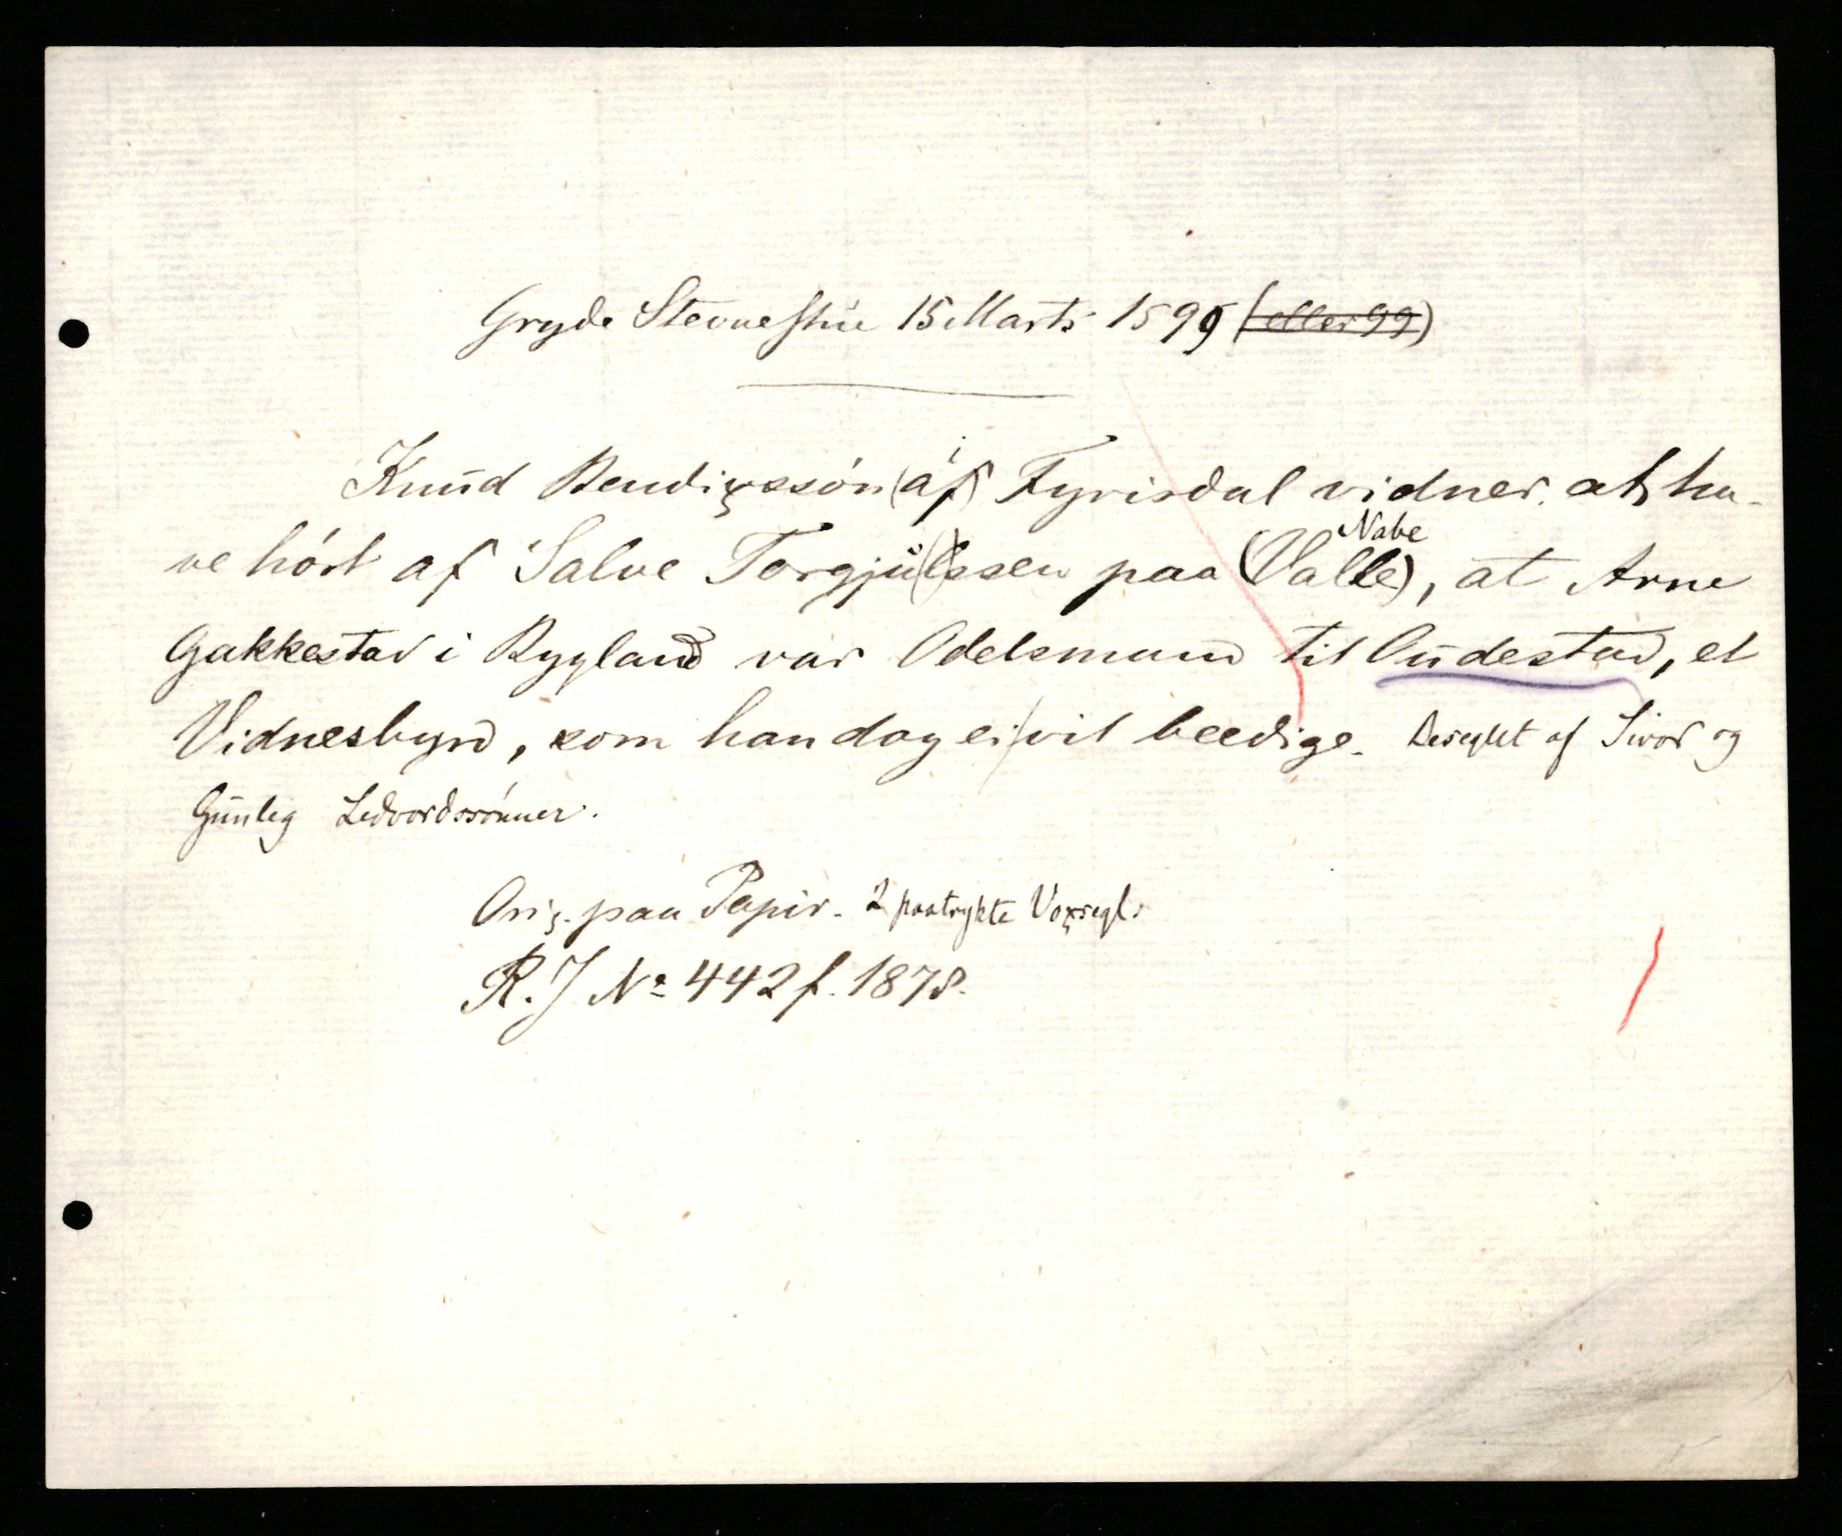 Gryde Stevnestue 15 Marts 1599 (eller 99)
Knud Bendixssón (af) i Fyrisdal vidner at ha-
ve hórt af Salve Torgju(l)ssen paa (Valle) Nabe, at Arne
Gakkestad i Bygland var Odelsmand til Oudestad, et
Vidnesbyrd, som han dog ei vil beedige. Beseglet af Sivord og
Gunleg Ledvordssónner.
Orig. paa Papir. 2 paatrykte Voxsegl.
R. J No 442 f. 1878.